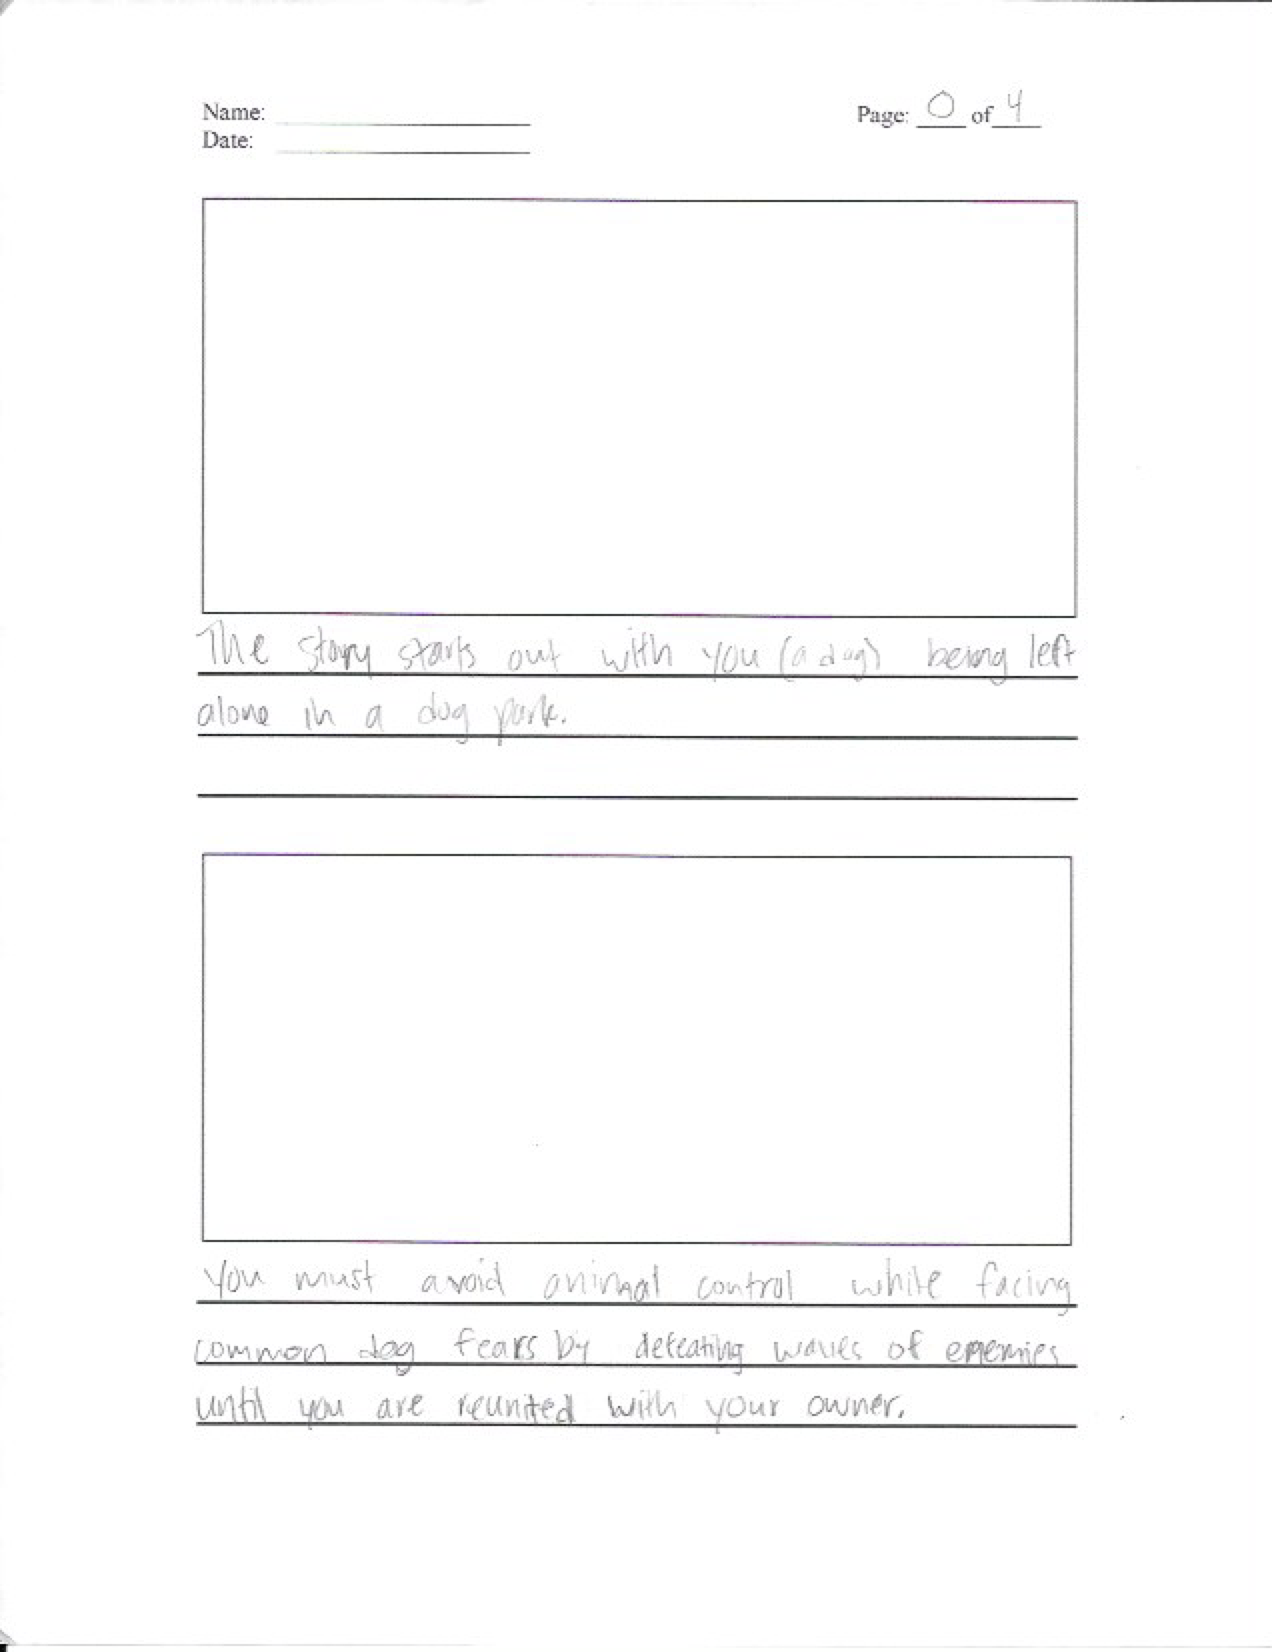 Name:
Page: 0 of 4
Date:
The story starts out with you (a dog) being left
alone in a dog park.
You must avoid animal control while facing
common dog fears by defeating waves of enemies
until you are reunited with your owner.